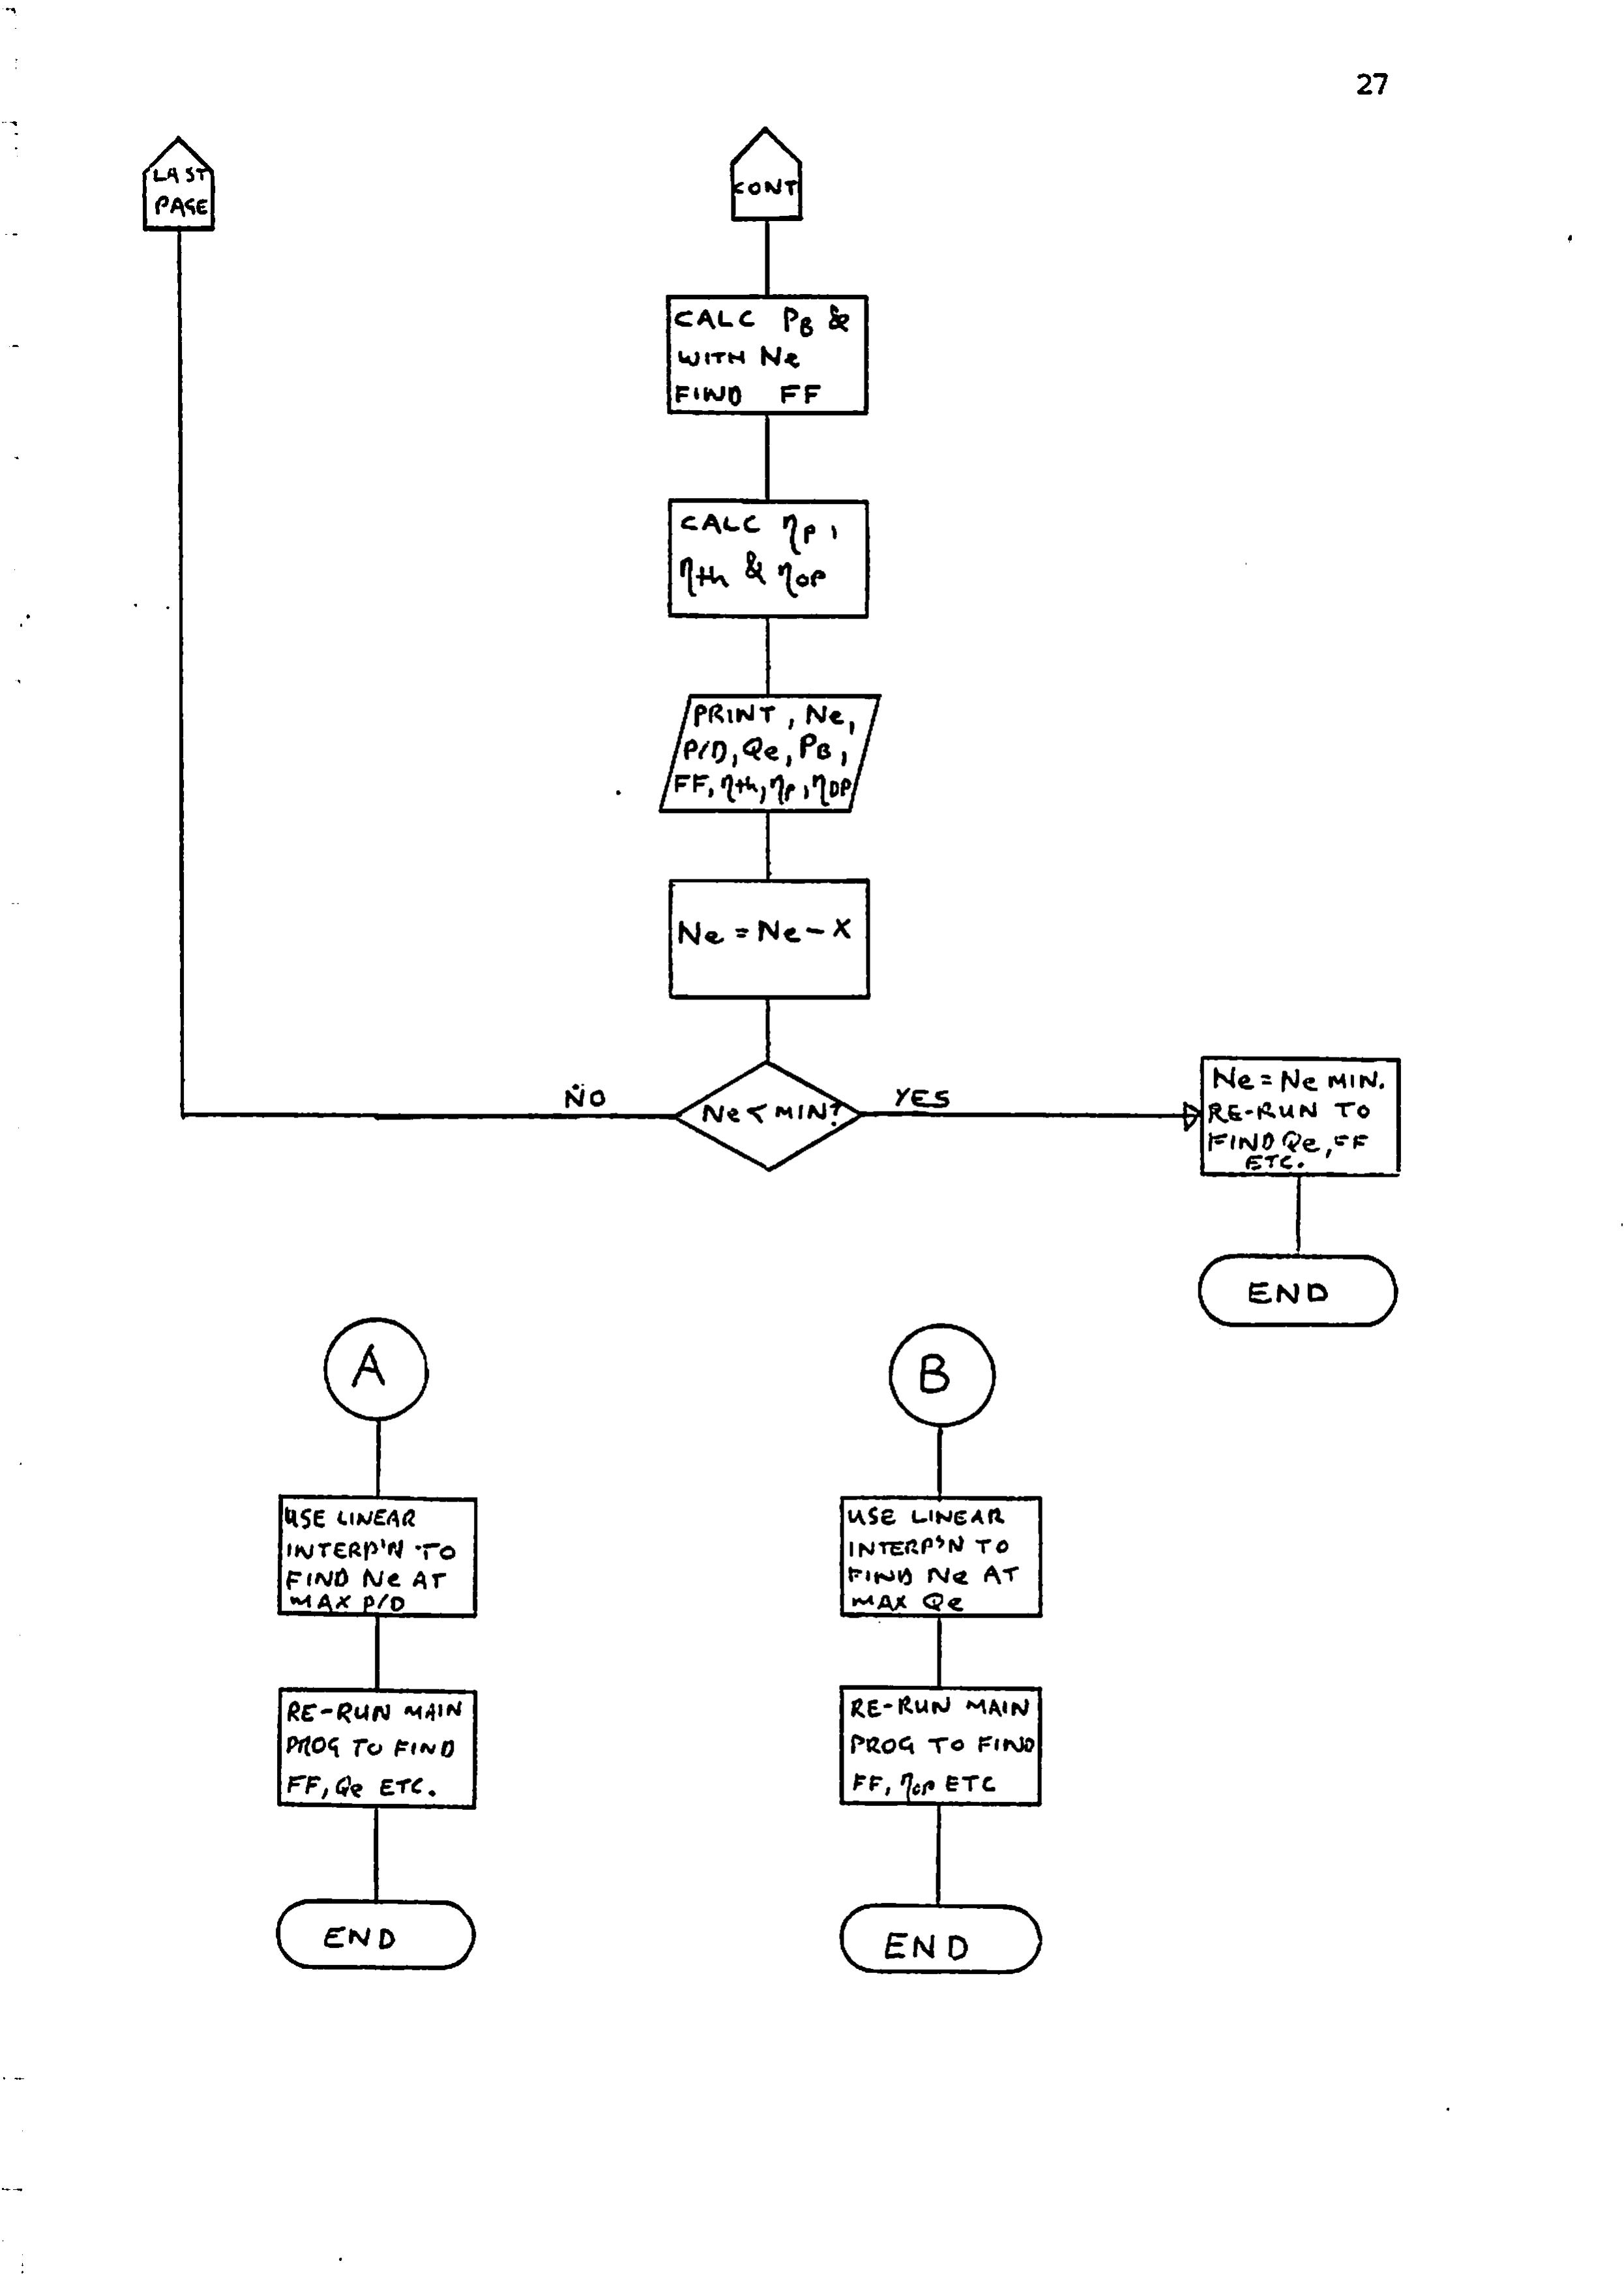 27
LAST
PAGE
CONT
CALC PB &
WITH Ne
FIND FF
CALC ηp,
ηth & ηop
PRINT, Ne,
P/D, Qe, PB,
FF, ηth, ηp, ηop
Ne = Ne - X
NO
Ne < MIN?
YES
Ne = Ne MIN.
RE-RUN TO
FIND Qe, FF
ETC.
END
A
USE LINEAR
INTERP'N TO
FIND Ne AT
MAX P/D
RE-RUN MAIN
PROG TO FIND
FF, Qe ETC.
END
B
USE LINEAR
INTERP'N TO
FIND Ne AT
MAX Qe
RE-RUN MAIN
PROG TO FIND
FF, ηop ETC
END